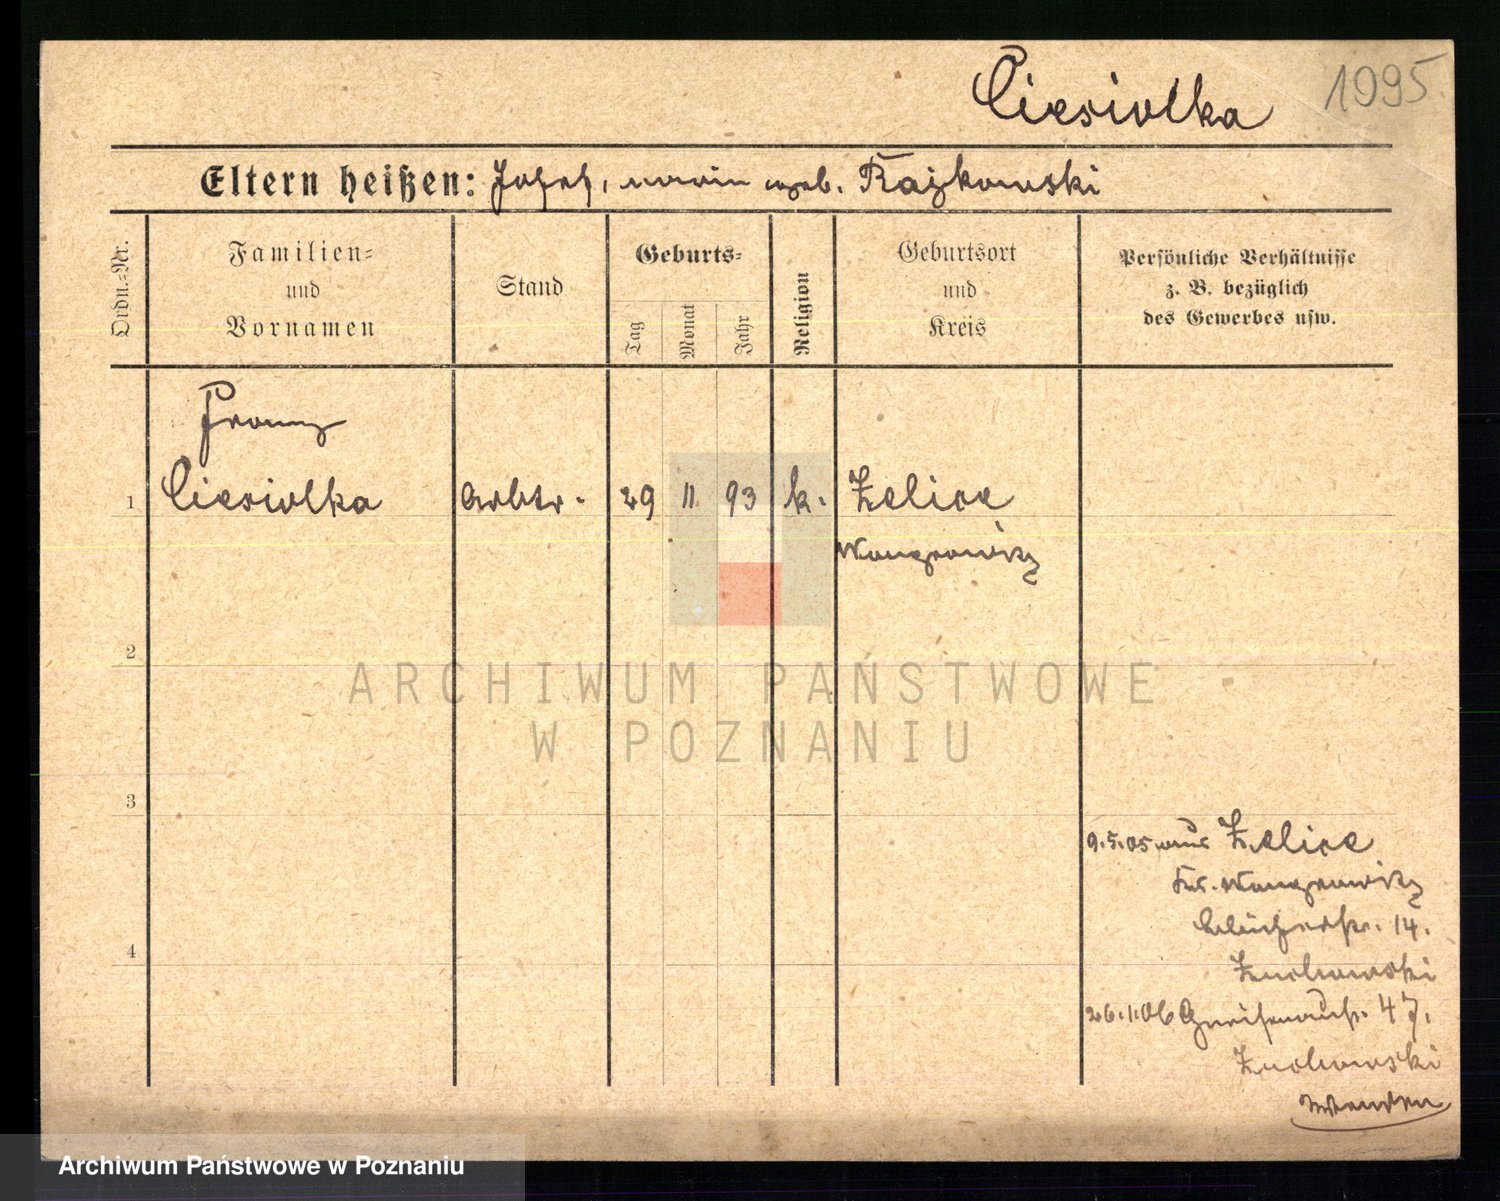 Ciesiolka 1095
Eltern heißen: Josef, Maria geb. Rajkowski
Ordn.=Nr.
Familien=
und
Vornamen
Stand
Geburts=
Tag
Monat
Jahr
Religion
Geburtsort
und
Kreis
Persönliche Verhältnisse
z. B. bezüglich
des Gewerbes usw.
Franz
1 Ciesiolka Arbtr. 29 11 93 k. Zelice
Wongrowitz
2
ARCHIWUM PAŃSTWOWE
W POZNANIU
3
9.5.05 aus Zelice
Kr. Wongrowitz
Blücherstr. 14.
4
Zuchowski
26.1.06 Gneisenaustr. 47.
Zuchowski
Wenden
Archiwum Państwowe w Poznaniu